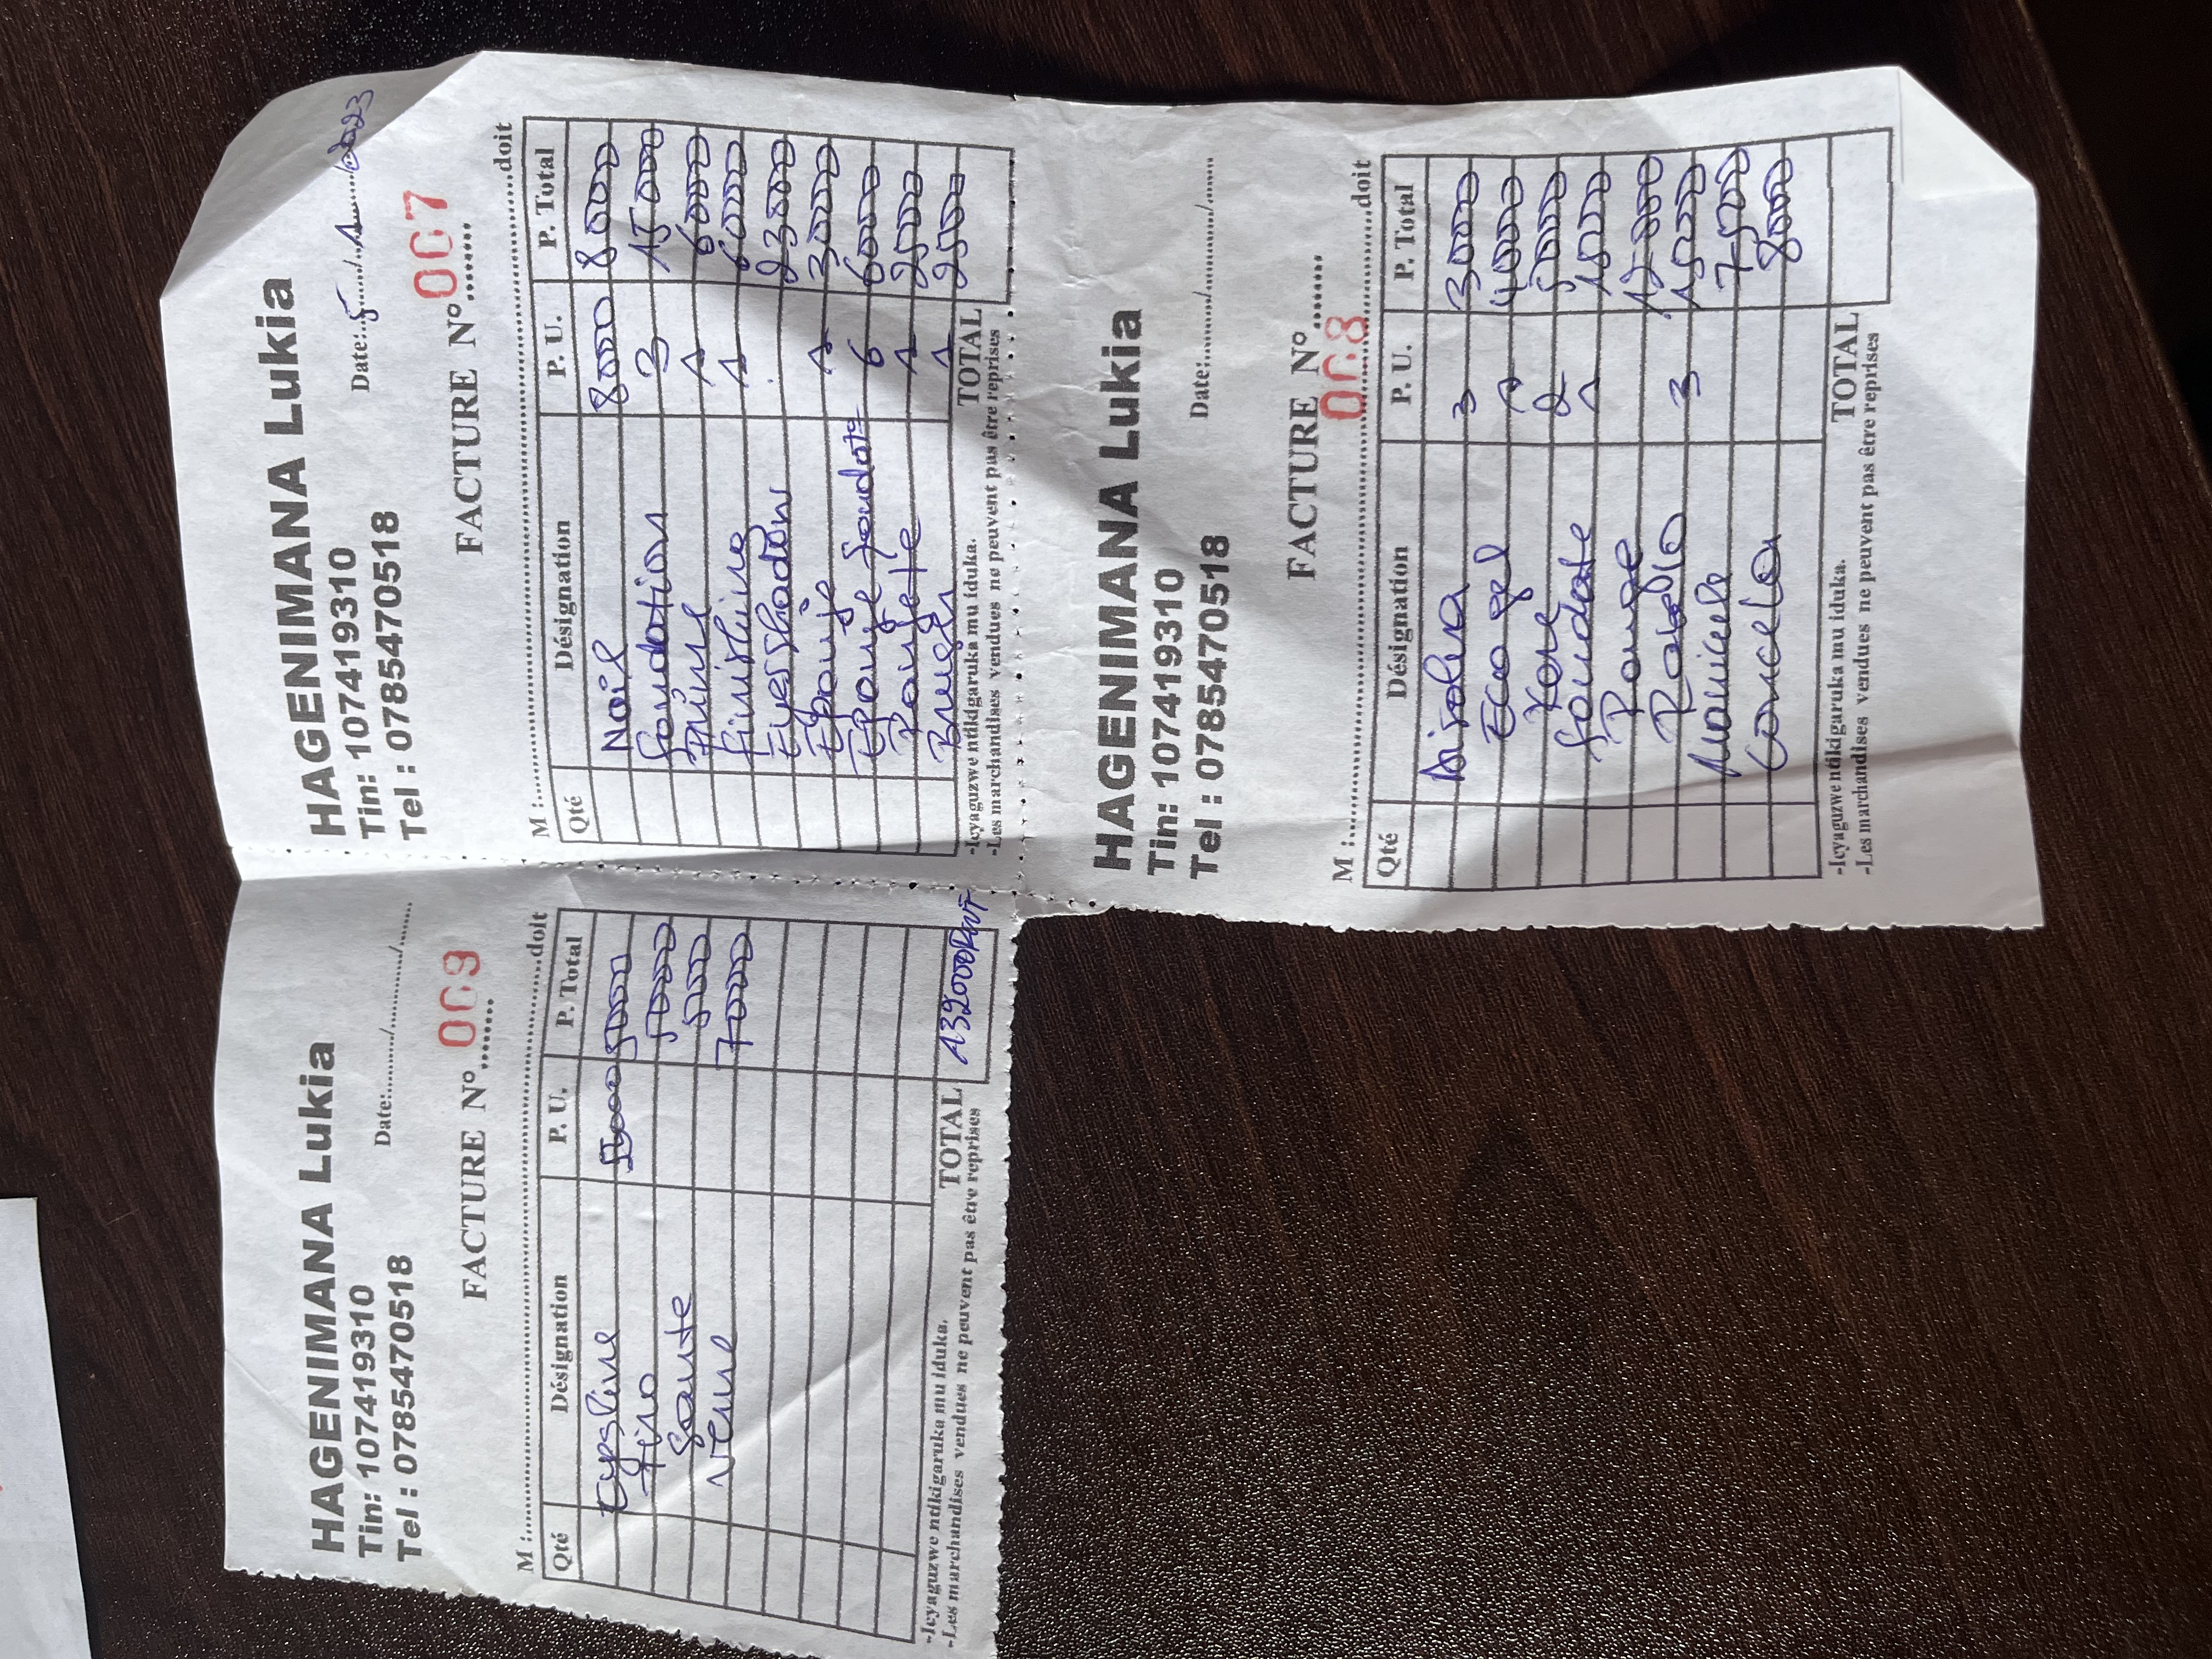 HAGENIMANA Lukia
Tin: 107419310
Tel : 0785470518
Date: 5/1/2023
FACTURE N° 007
M :..........doit
Qté Désignation P. U. P. Total
Noir 8000 8000
foundation 3 15000
1 6000
finishing 1 6000
Eyeshadow 23000
Eponge 1 3000
Eponge 6 6000
1 2500
1 2500
TOTAL
-Icyaguzwe ntikigaruka mu iduka.
-Les marchandises vendues ne peuvent pas être reprises
HAGENIMANA Lukia
Tin: 107419310
Tel : 0785470518
Date:....../....../......
FACTURE N° 008
M :..........doit
Qté Désignation P. U. P. Total
3 3000
Eco gel 4000
2 5000
foundate 1 1500
Rouge
3 1500
7500
8000
TOTAL
-Icyaguzwe ntikigaruka mu iduka.
-Les marchandises vendues ne peuvent pas être reprises
HAGENIMANA Lukia
Tin: 107419310
Tel : 0785470518
Date:....../....../......
FACTURE N° 009
M :..........doit
Qté Désignation P. U. P. Total
5000
5000
5000
7000
TOTAL 132000RWF
-Icyaguzwe ntikigaruka mu iduka.
-Les marchandises vendues ne peuvent pas être reprises